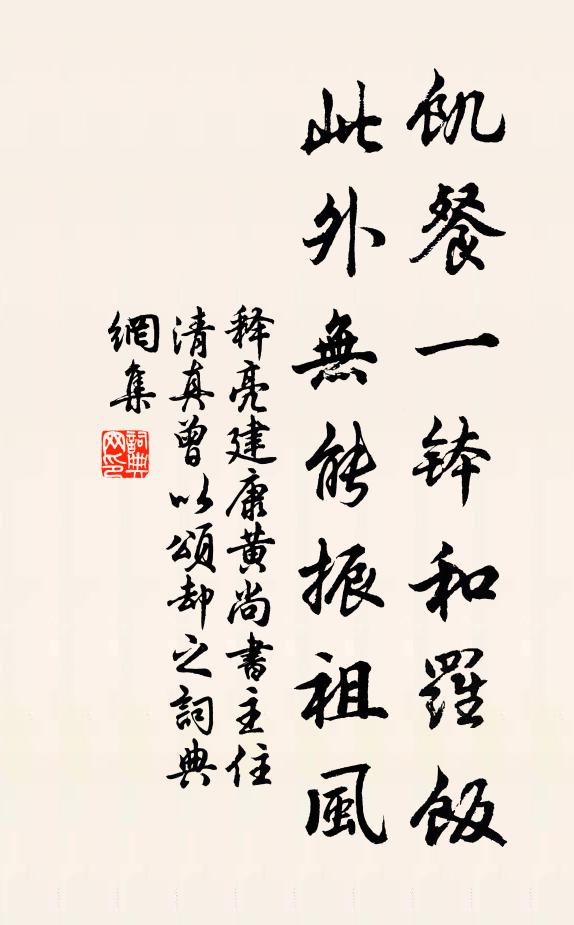 飢餐一鉢和羅飯
此外無能振祖風
释亮建康黄尚書主住
清真曾以頌却之詞典
網集
詞典
网印